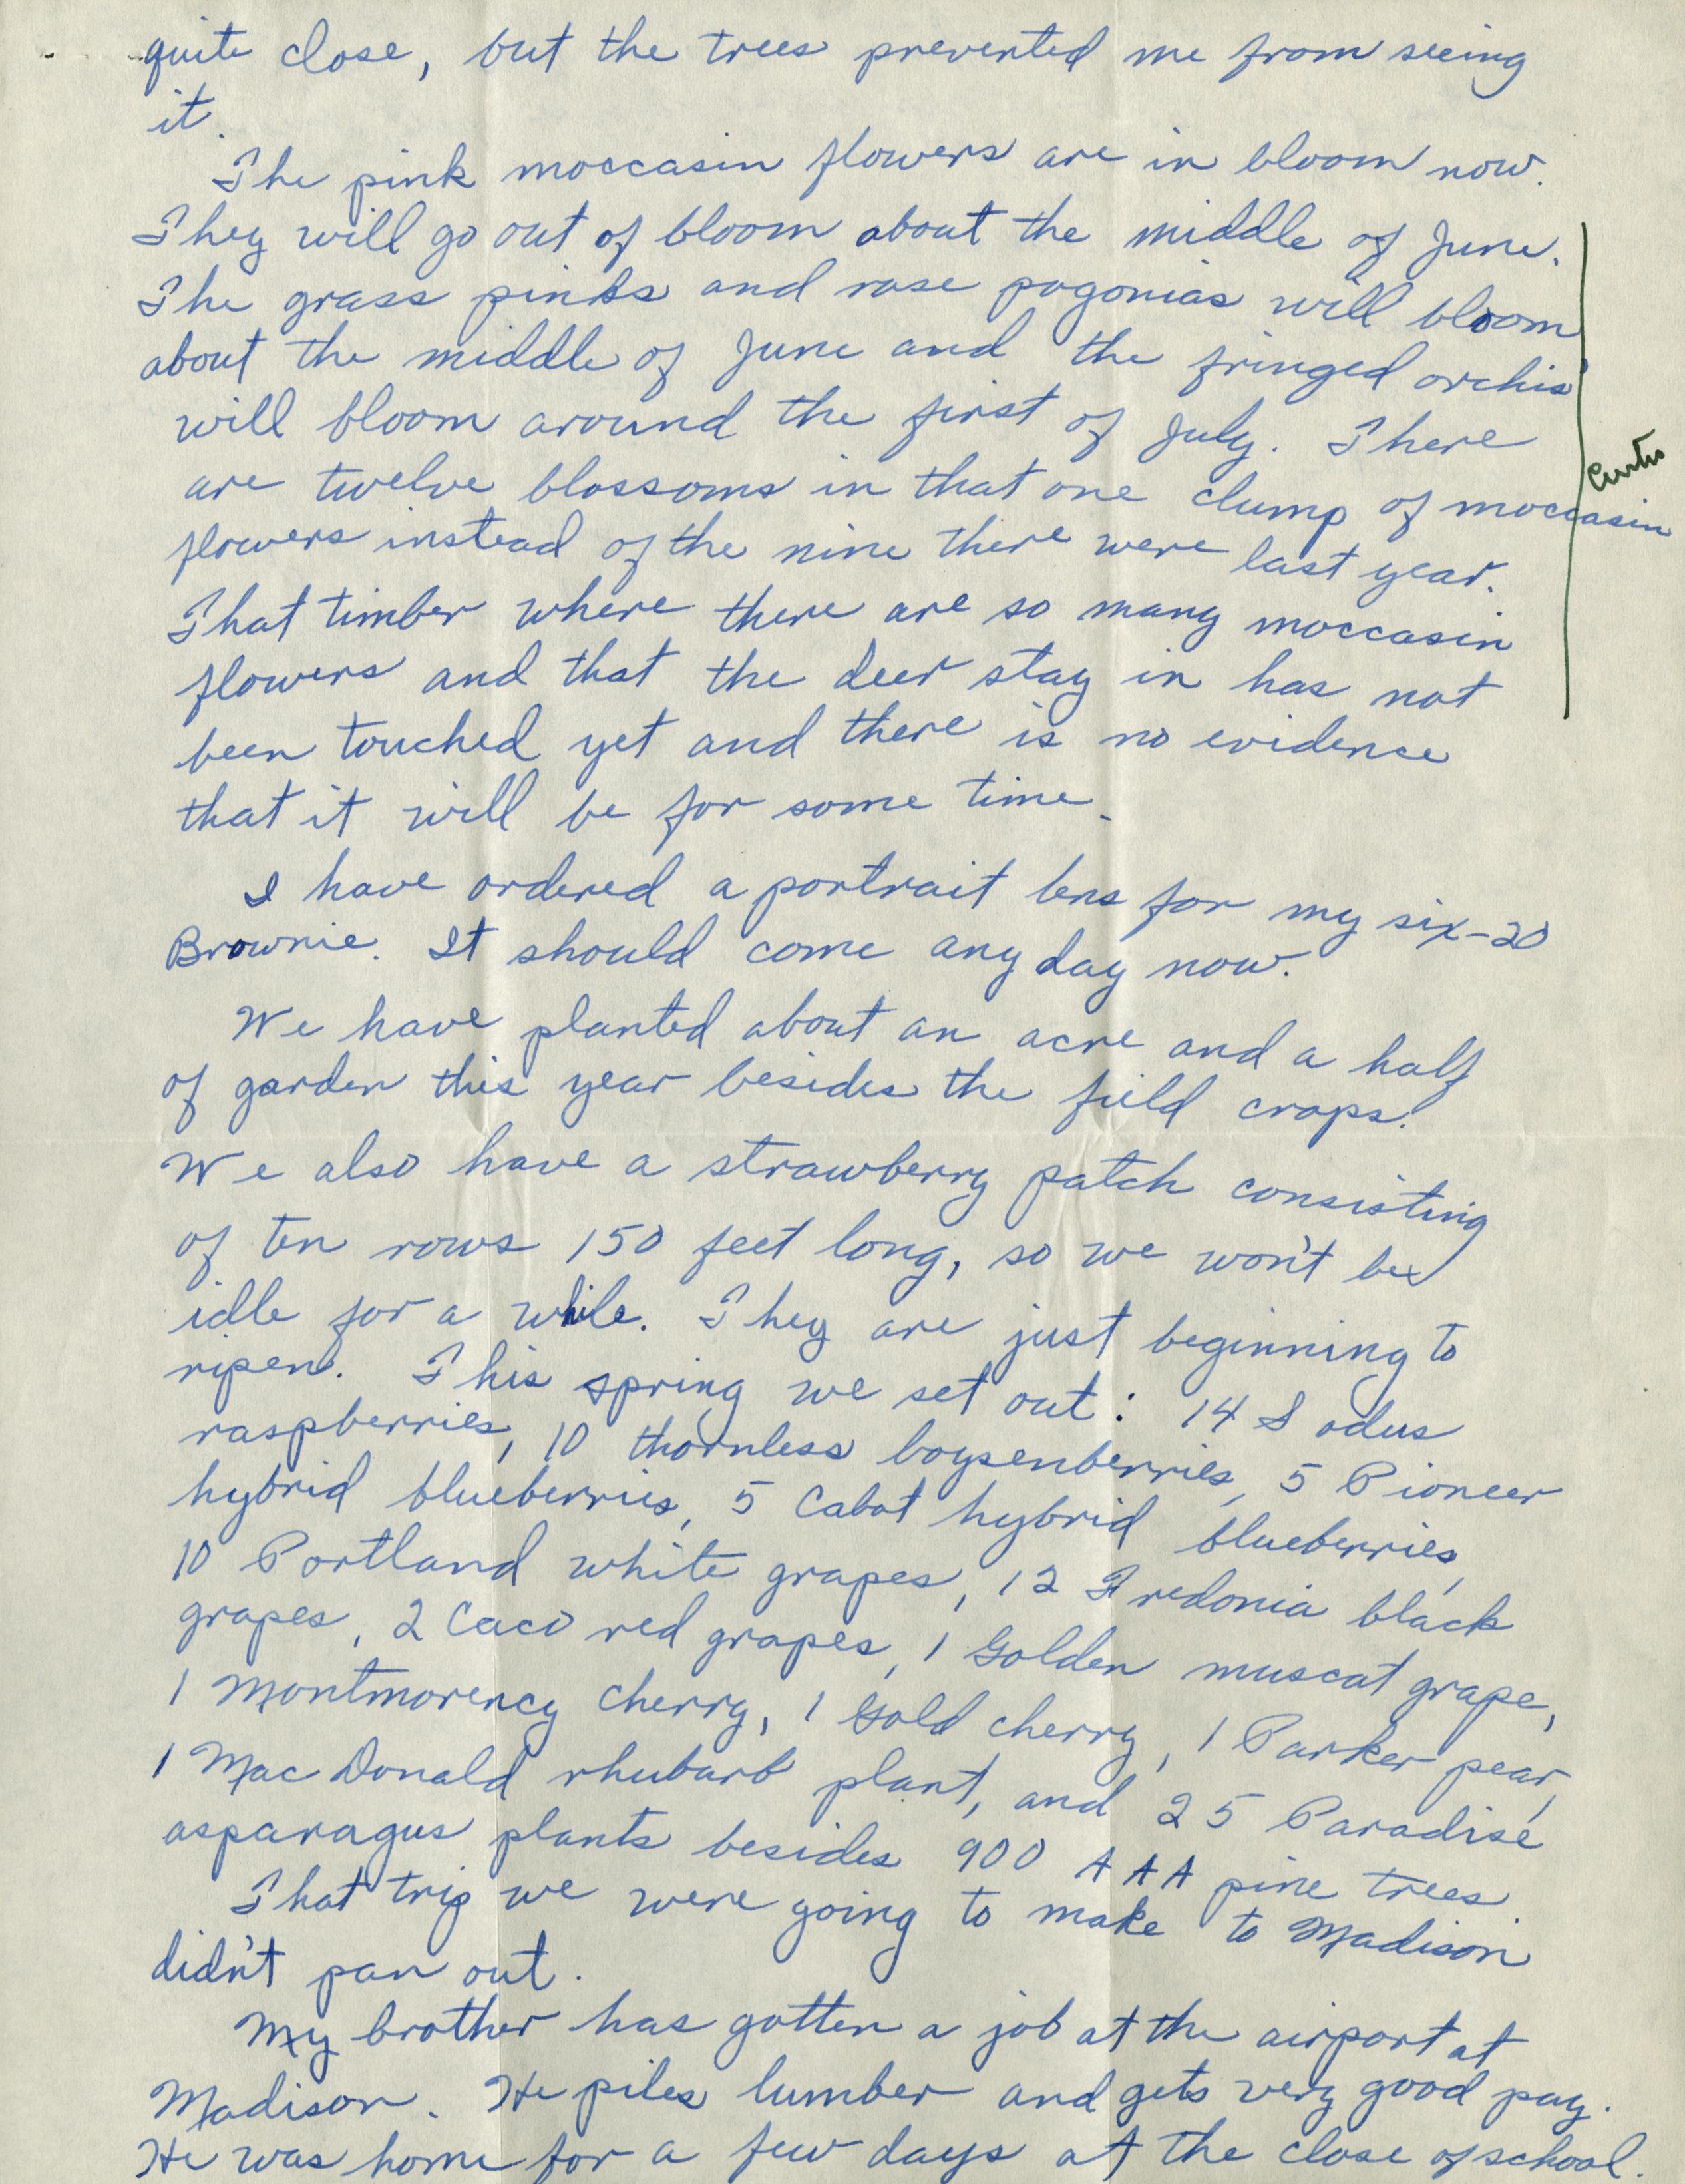 quite close, but the trees prevented me from seeing
it.
The pink moccasin flowers are in bloom now.
They will go out of bloom about the middle of June.
The grass pinks and rose pogonias will bloom
about the middle of June and the fringed orchis
will bloom around the first of July. There
are twelve blossoms in that one clump of moccasin
Curtis
flowers instead of the nine there were last year.
That timber where there are so many moccasin
flowers and that the deer stay in has not
been touched yet and there is no evidence
that it will be for some time.
I have ordered a portrait lens for my six-20
Brownie. It should come any day now.
We have planted about an acre and a half
of garden this year besides the field crops.
We also have a strawberry patch consisting
of ten rows 150 feet long, so we won't be
idle for a while. They are just beginning to
ripen. This spring we set out: 14 Sodus
raspberries, 10 thornless boysenberries, 5 Pioneer
hybrid blueberries, 5 Cabot hybrid blueberries,
10 Portland white grapes, 12 Fredonia black
grapes, 2 Caco red grapes, 1 Golden muscat grape,
1 Montmorency cherry, 1 Gold cherry, 1 Parker pear,
1 MacDonald rhubarb plant, and 25 Paradise
asparagus plants besides 900 AAA pine trees.
That trip we were going to make to Madison
didn't pan out.
My brother has gotten a job at the airport at
Madison. He piles lumber and gets very good pay.
He was home for a few days at the close of school.